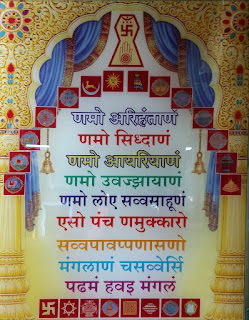 णमो अरिहंताणं
णमो सिध्दाणं
णमो आयरियाणं
णमो उवज्झायाणं
णमो लोए सव्वसाहूणं
एसो पंच णमुक्कारो
सव्वपावप्पणासणो
मंगलाणं चसव्वेर्सि
पढमं हवइ मंगलं